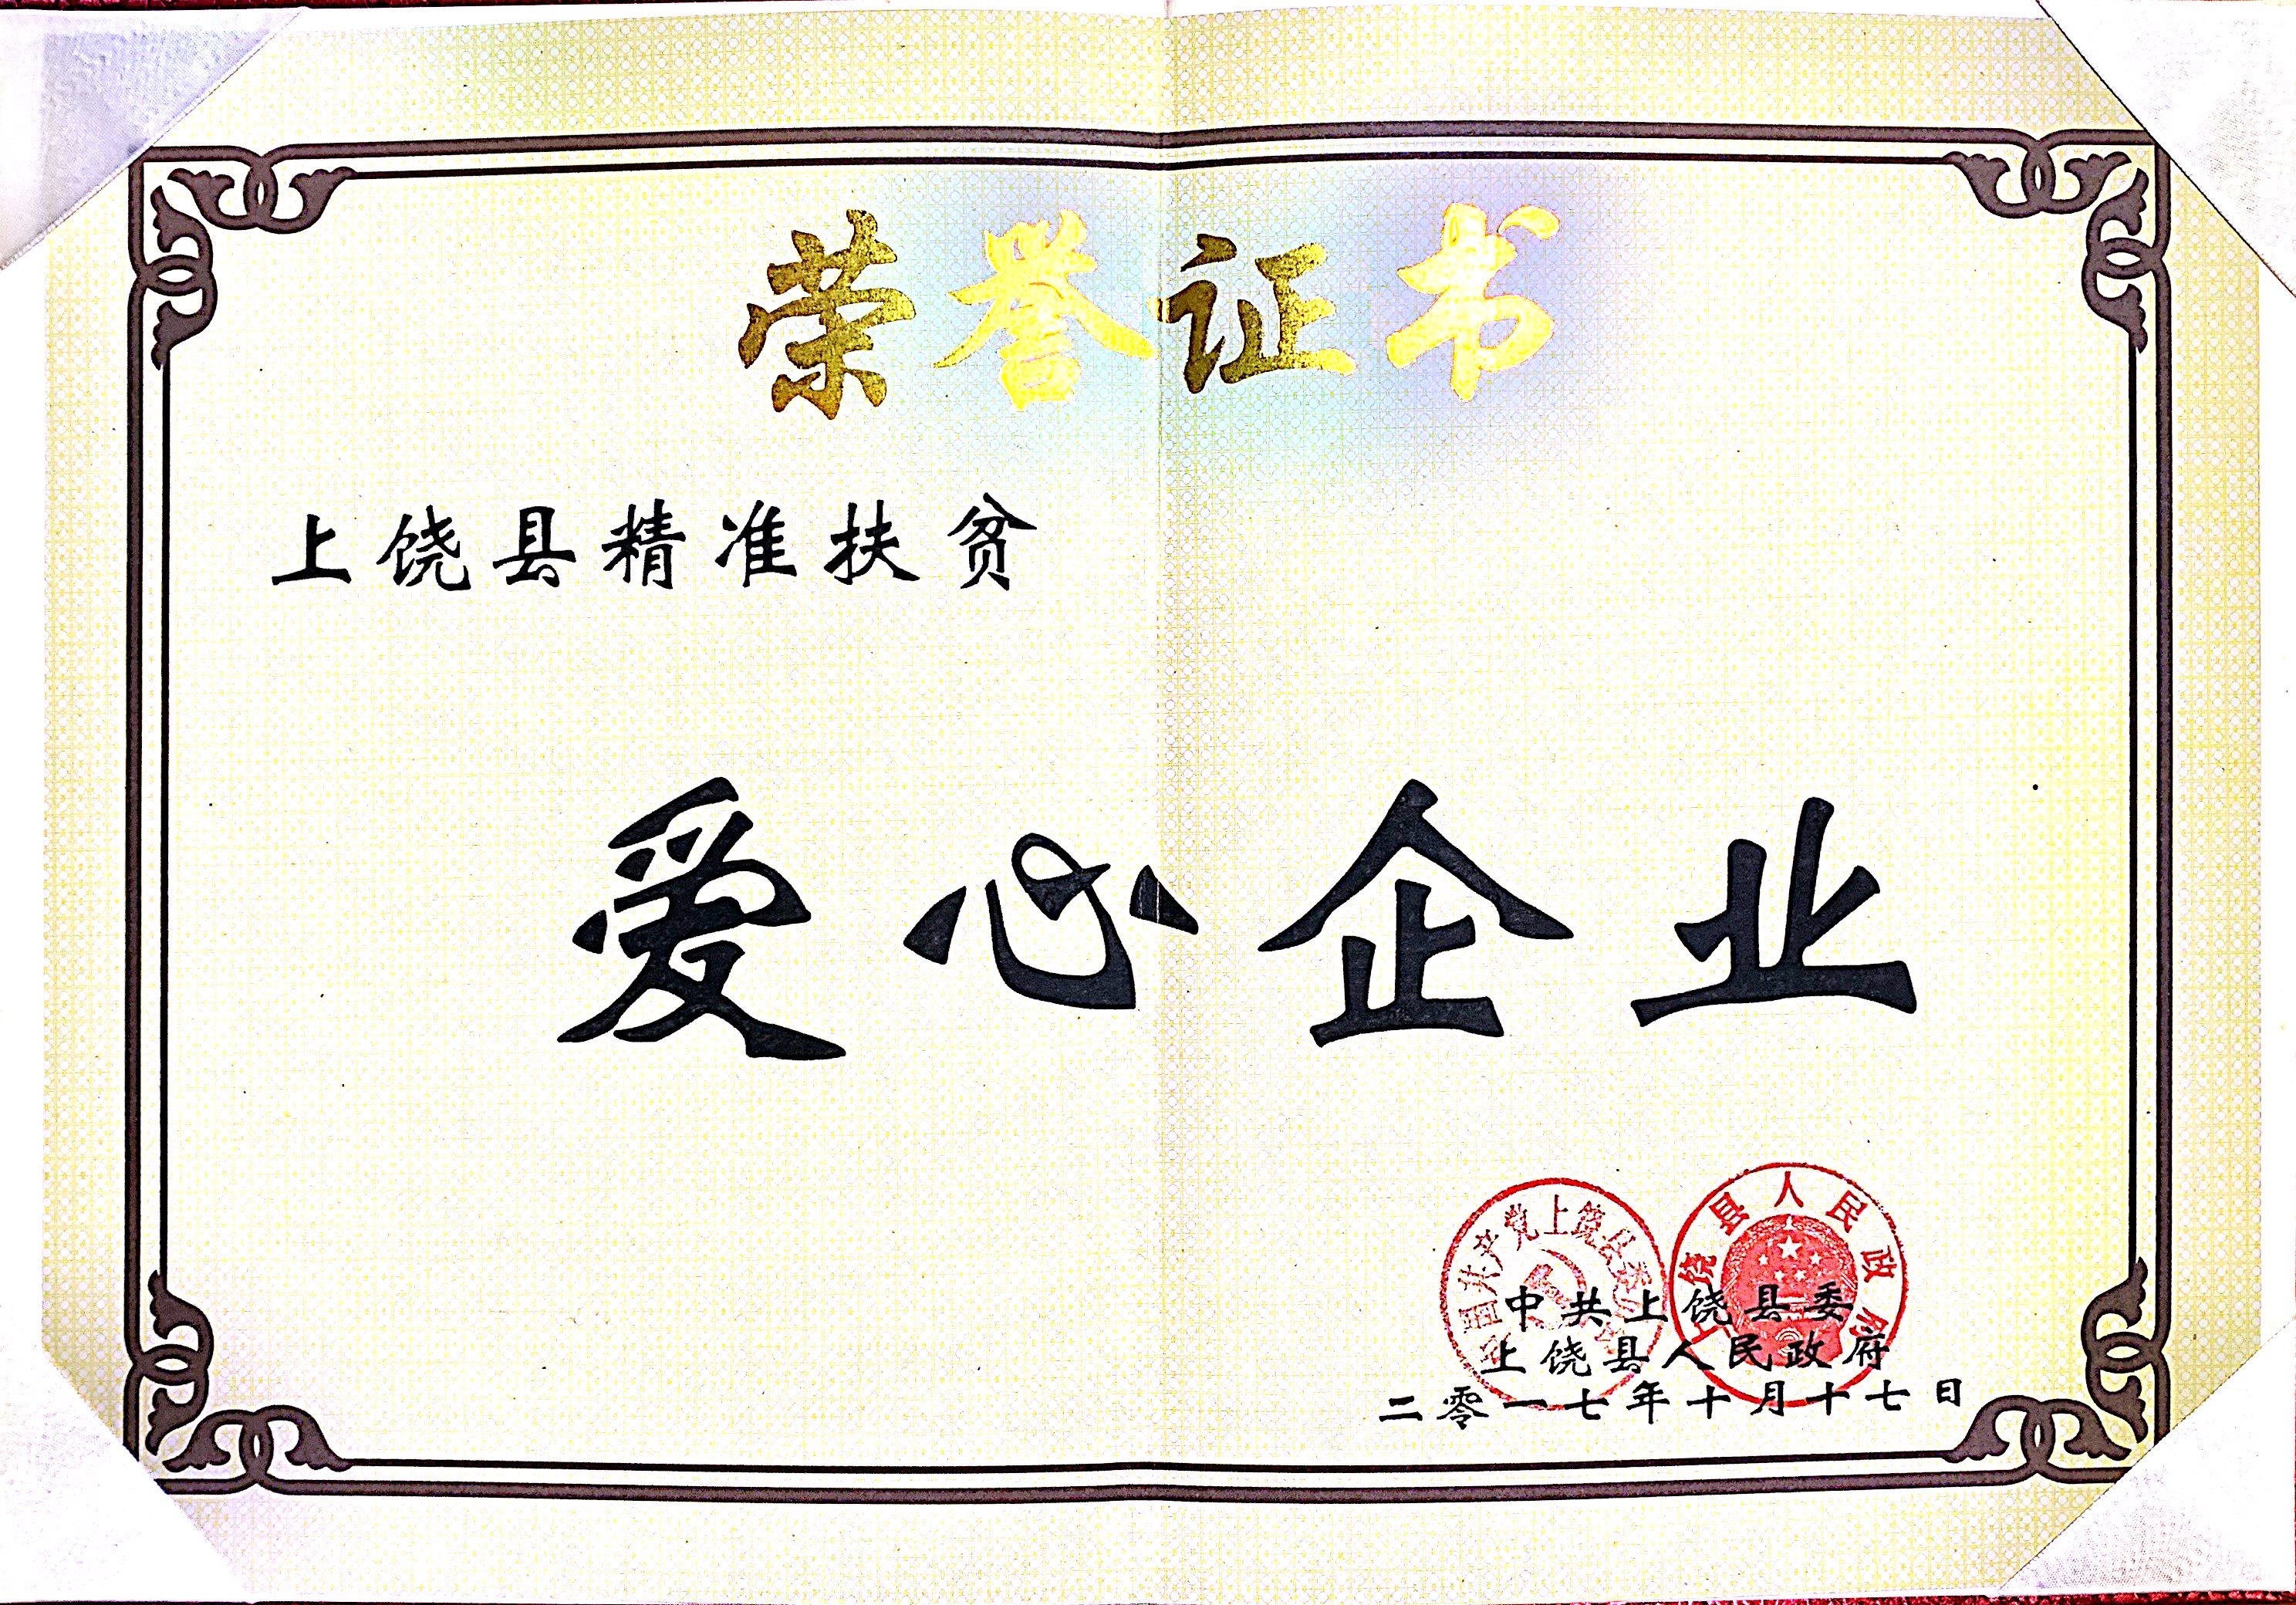 荣誉证书
上饶县精准扶贫
爱心企业
中国共产党上饶县委
饶县人民政府
中共上饶县委
上饶县人民政府
二零一七年十月十七日